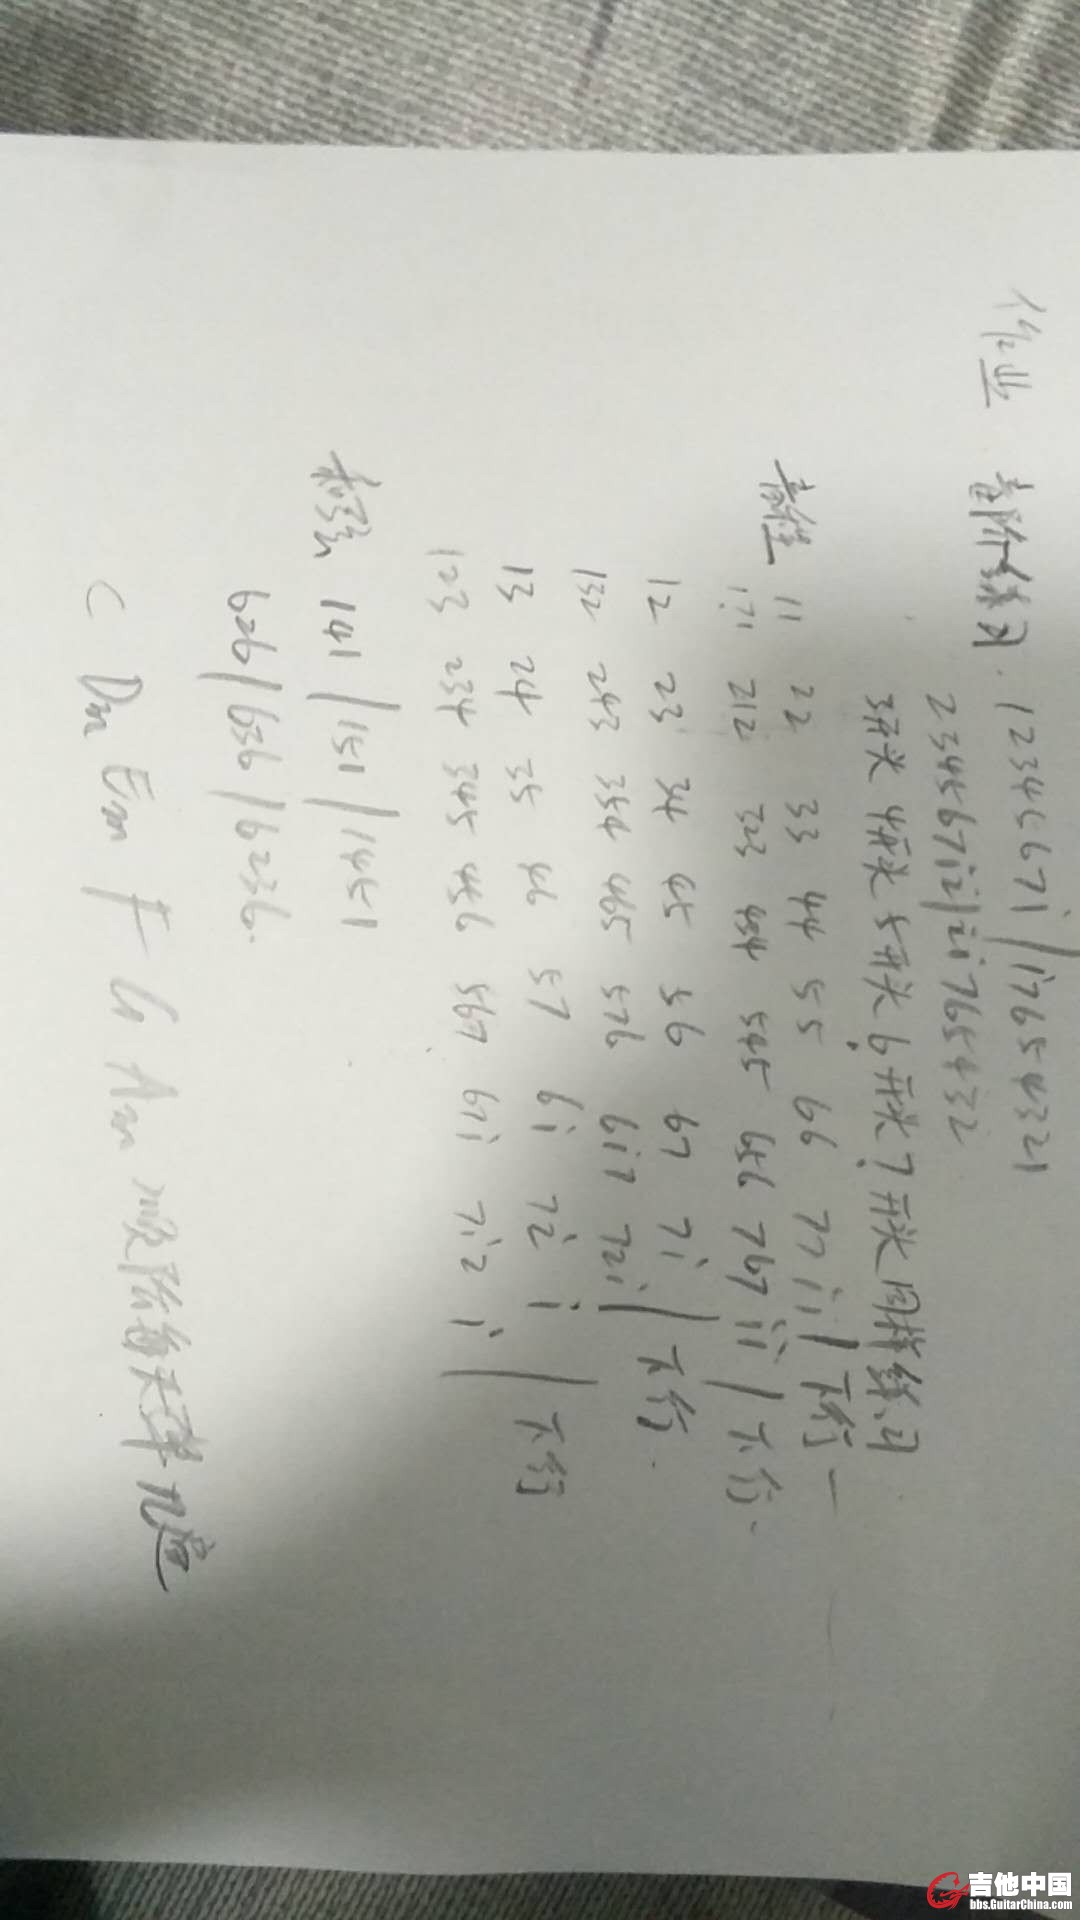 作业 音阶练习. 1 2 3 4 5 6 7 i / i 7 6 5 4 3 2 1
2 3 4 5 6 7 i 2̇ / 2̇ i 7 6 5 4 3 2
3开头 4开头 5开头 6̣开头 7̣开头 同样练习
11 22 33 44 55 66 77 ii / 下行
171 212 323 434 545 656 767 i7i / 下行.
12 23 34 45 56 67 7i / 下行.
132 243 354 465 576 6i7 72̇i
13 24 35 46 57 6i 72̇ i 下行
123 234 345 456 567 67i 7i2̇ i
和弦 141 / 151 / 1451
626 / 636 / 6236.
C Dm Em F G Am 顺阶每天弹几遍
吉他中国
bbs.GuitarChina.com